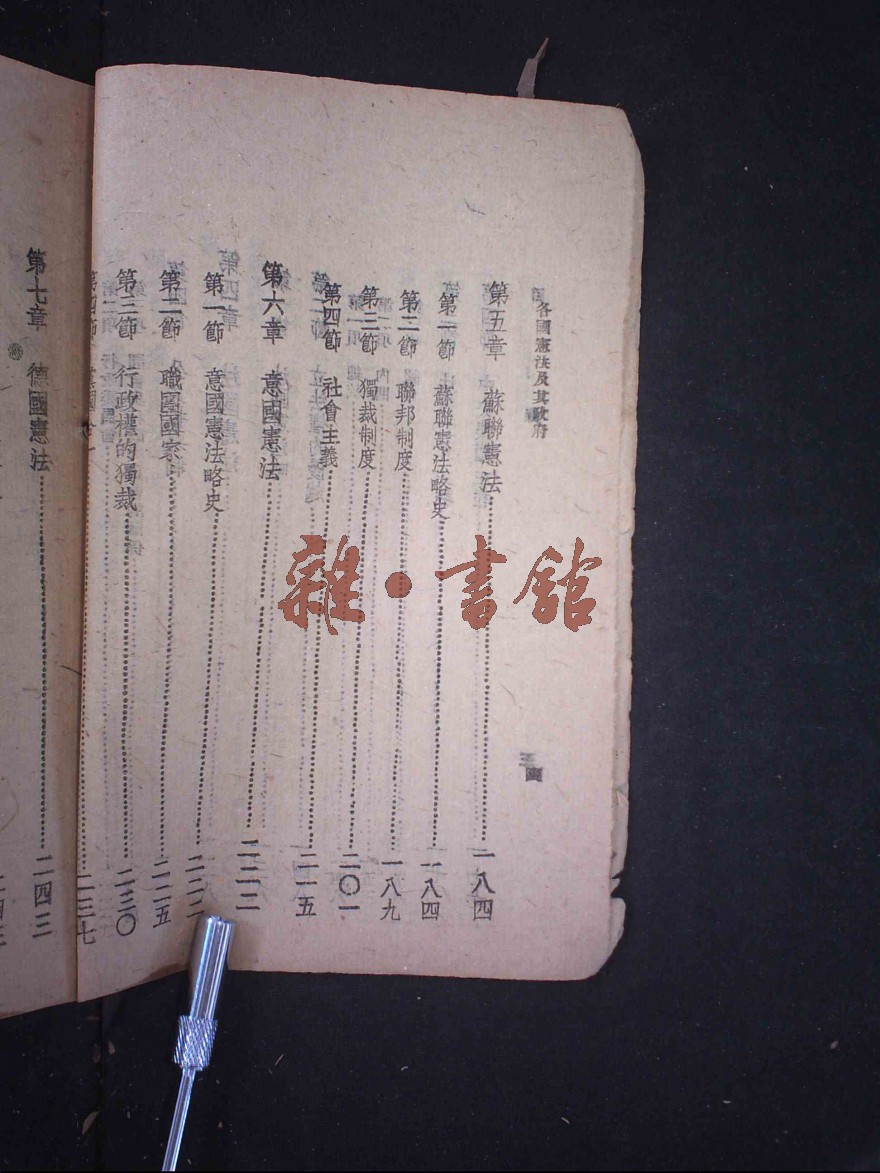 各國憲法及其政府
第五章 蘇聯憲法 一八四
第一節 蘇聯憲法略史 一八四
第二節 聯邦制度 一八九
第三節 獨裁制度 二〇一
第四節 社會主義 二一五
第六章 意國憲法 二二二
第一節 意國憲法略史 二二二
第二節 職團國家 二二五
第三節 行政權的獨裁 二三〇
第四節 二三七
第七章 德國憲法 二四三
雜·書館